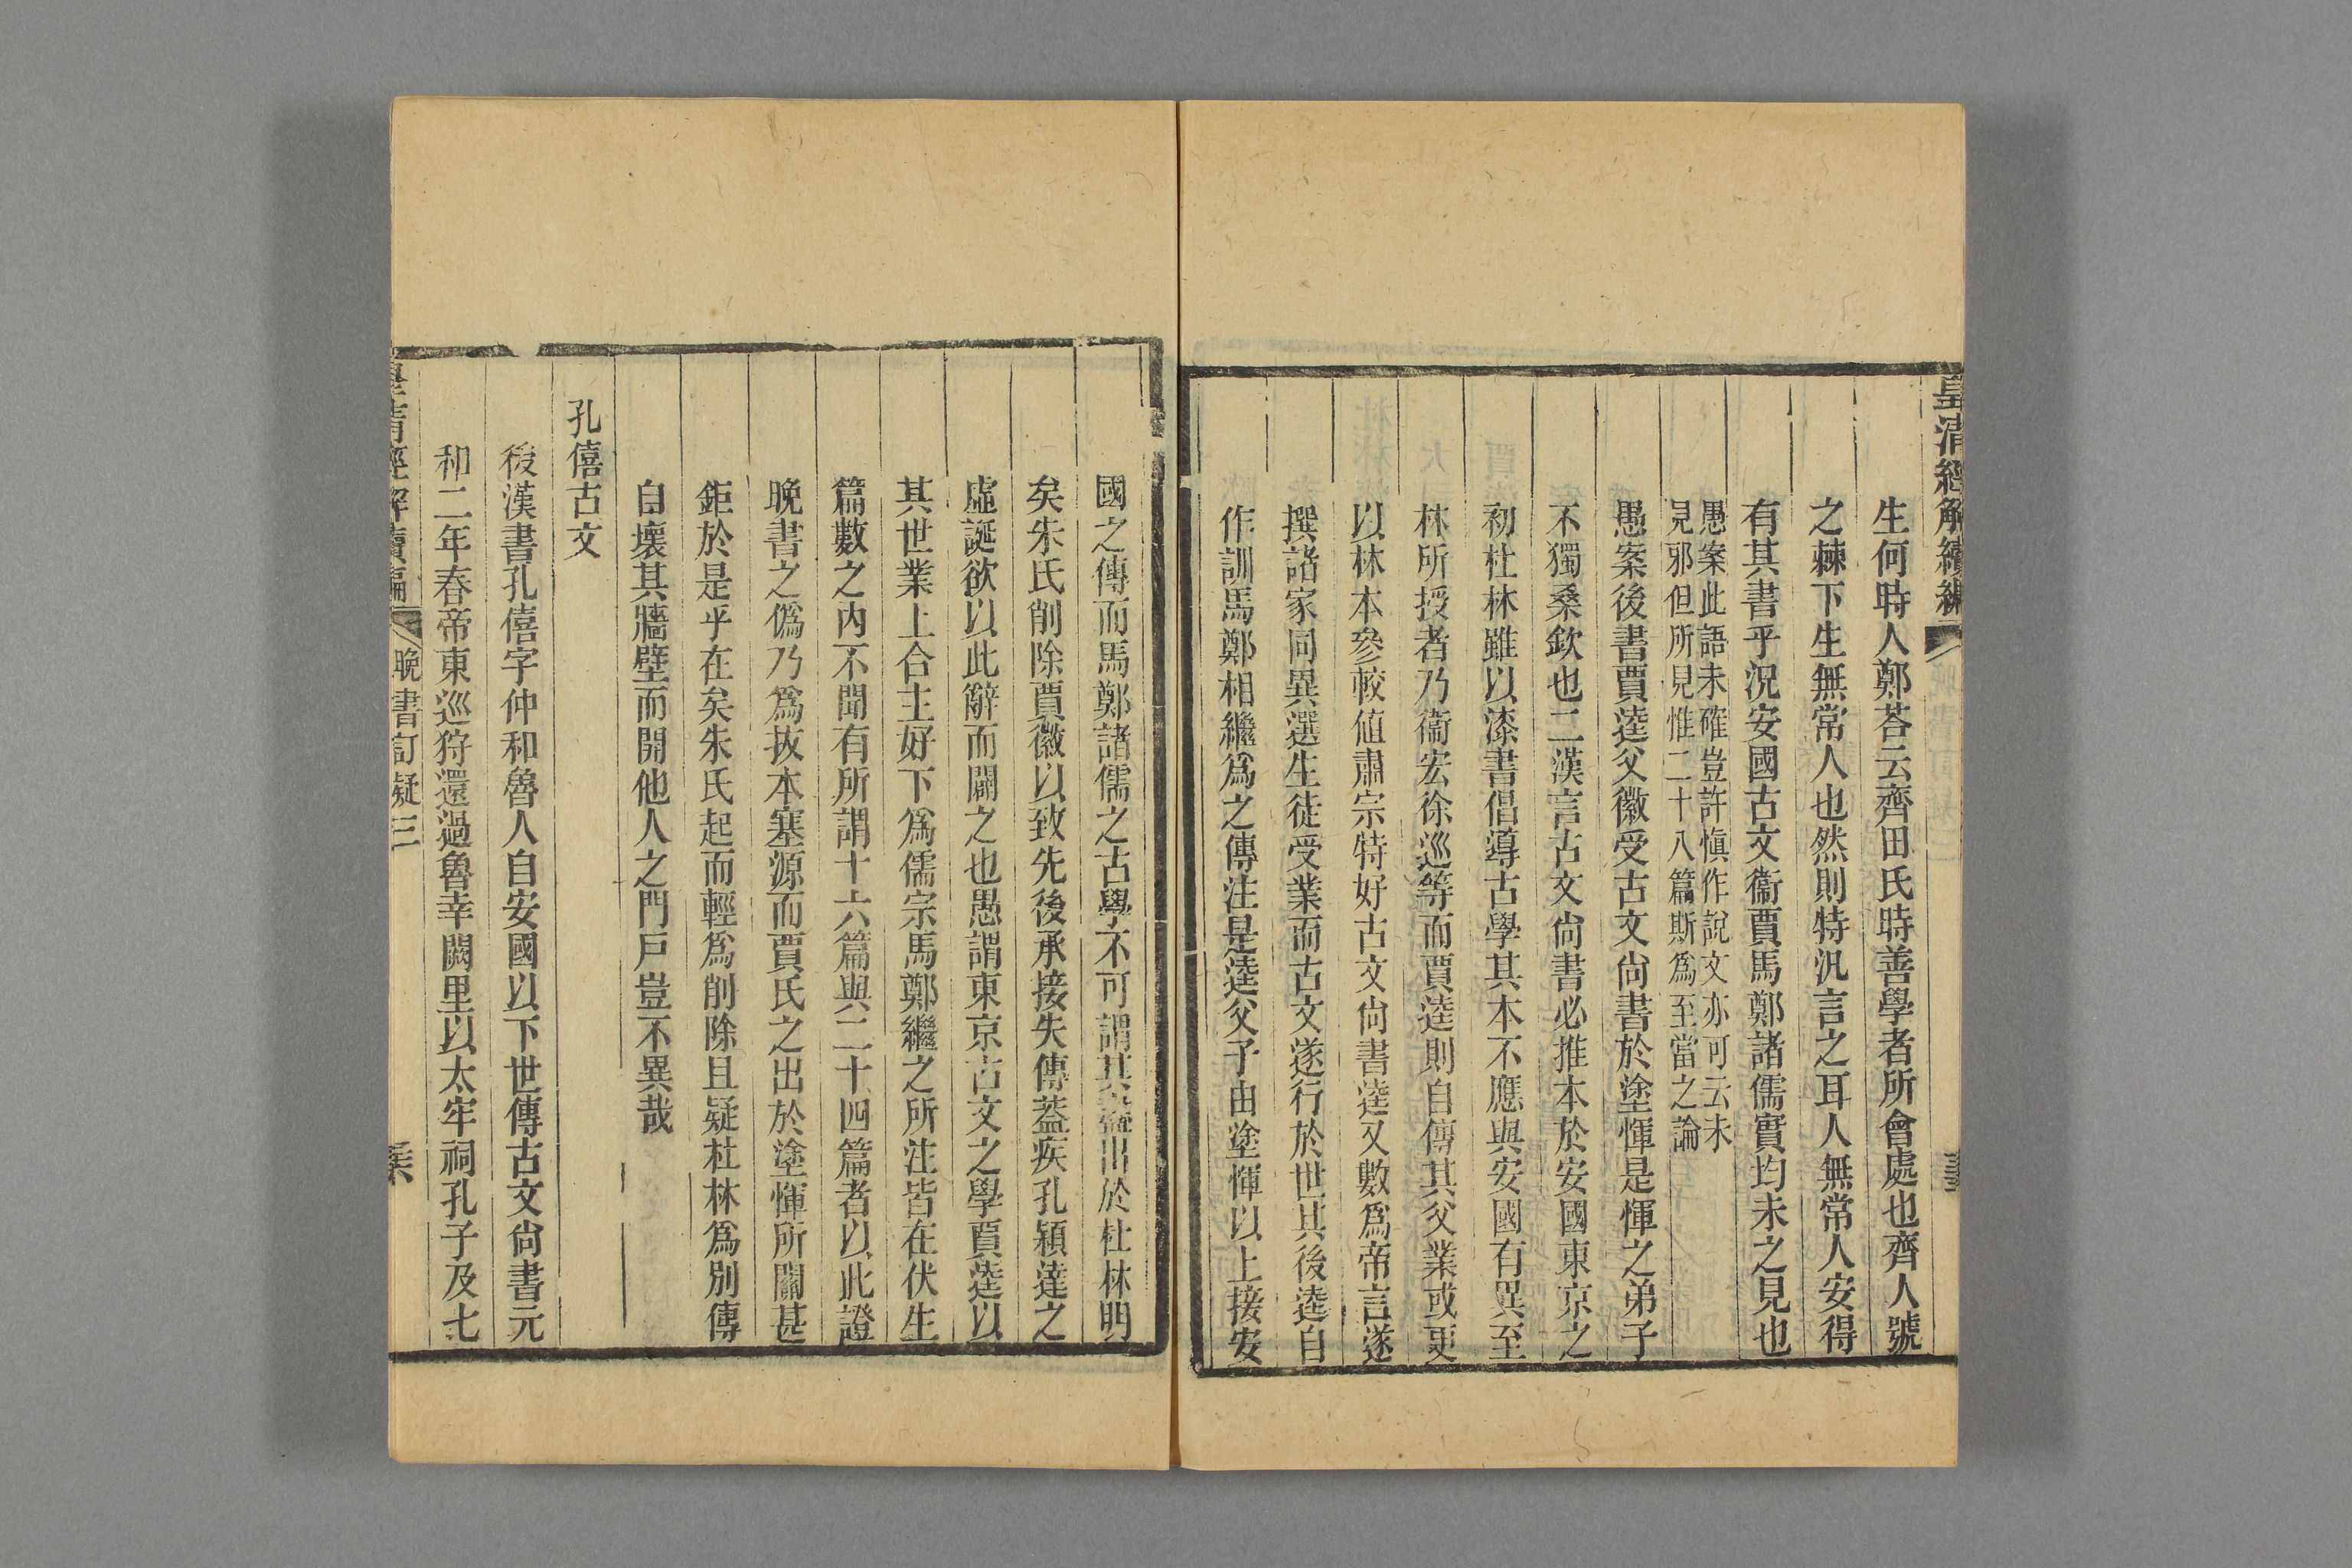 皇清經解續編
生何時人鄭荅云齊田氏時善學者所會處也齊人號
之棘下生無常人也然則特汎言之耳人無常人安得
有其書乎況安國古文衞賈馬鄭諸儒實均未之見也
愚案此語未確豈許愼作說文亦可云未
見邪但所見惟二十八篇斯爲至當之論
愚案後書賈逵父徽受古文尙書於塗惲是惲之弟子
不獨桑欽也二漢言古文尙書必推本於安國東京之
初杜林雖以漆書倡導古學其本不應與安國有異至
林所授者乃衞宏徐巡等而賈逵則自傳其父業或更
以林本參較値肅宗特好古文尙書逵又數爲帝言遂
撰諸家同異選生徒受業而古文遂行於世其後逵自
作訓馬鄭相繼爲之傳注是逵父子由塗惲以上接安
國之傳而馬鄭諸儒之古學不可謂其盡出於杜林明
矣朱氏削除賈徽以致先後承接失傳蓋疾孔穎達之
虛誕欲以此辭而闢之也愚謂東京古文之學賈逵以
其世業上合主好下爲儒宗馬鄭繼之所注皆在伏生
篇數之內不聞有所謂十六篇與二十四篇者以此證
晚書之僞乃爲拔本塞源而賈氏之出於塗惲所關甚
鉅於是乎在矣朱氏起而輕爲削除且疑杜林爲別傳
自壞其牆壁而開他人之門戶豈不異哉
孔僖古文
後漢書孔僖字仲和魯人自安國以下世傳古文尙書元
和二年春帝東巡狩還過魯幸闕里以太牢祠孔子及七
皇清經解續編
晚書訂疑三